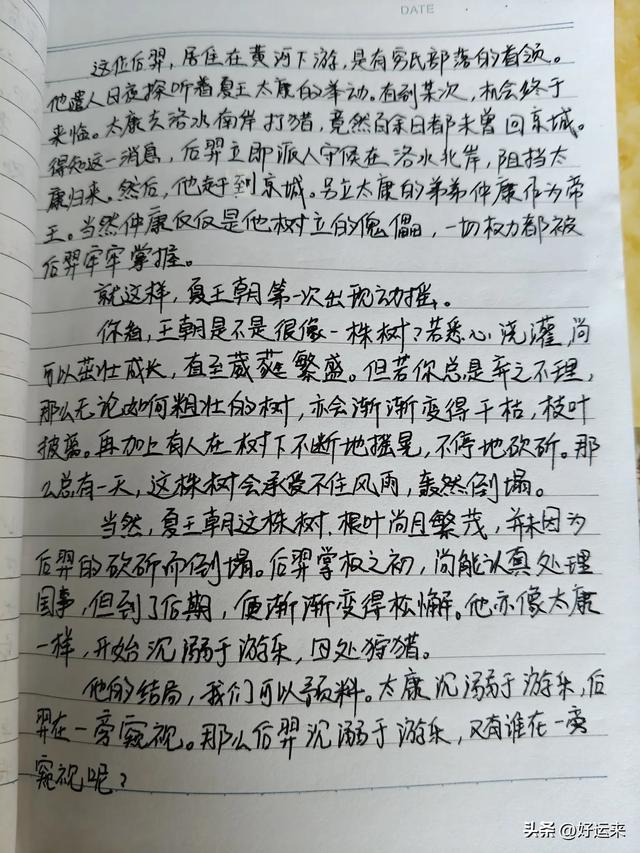 DATE
这位后羿，居住在黄河下游，是有穷氏部落的首领。
他遣人日夜探听着夏王太康的举动。有到某次，机会终于
来临。太康去洛水南岸打猎，竟然百余日都未曾回京城。
得知这一消息，后羿立即派人守候在洛水北岸，阻挡太
康归来。然后，他赶到京城。另立太康的弟弟仲康作为帝
王。当然仲康仅仅是他树立的傀儡，一切权力都被
后羿牢牢掌握。
就这样，夏王朝第一次出现动摇。
你看，王朝是不是很像一株树？若悉心浇灌，尚
可以茁壮成长，直至葳蕤繁盛。但若你总是弃之不理，
那么无论如何粗壮的树，亦会渐渐变得干枯，枝叶
披离。再加上有人在树下不断地摇晃，不停地砍斫。那
么总有一天，这株树会承受不住风雨，轰然倒塌。
当然，夏王朝这株树，根叶尚且繁茂，并未因为
后羿的砍斫而倒塌。后羿掌权之初，尚能认真处理
国事，但到了后期，便渐渐变得松懈。他亦像太康
一样，开始沉溺于游乐，四处狩猎。
他的结局，我们可以预料。太康沉溺于游乐，后
羿在一旁窥视。那么后羿沉溺于游乐，又有谁在一旁
窥视呢？
头条 @好运来